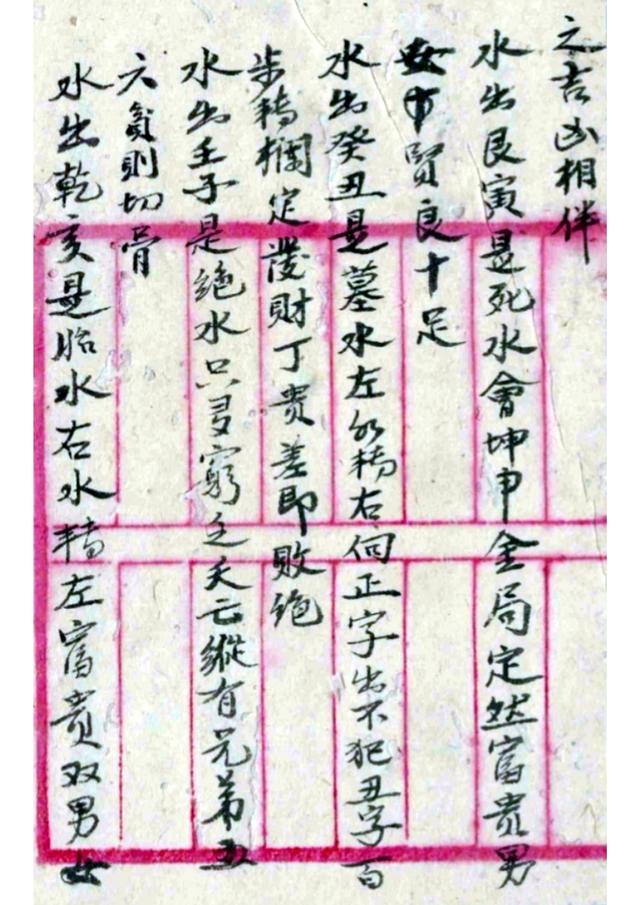 之吉凶相伴
水出艮寅是死水會坤申金局定然富贵男
女巾賢良十足
水出癸丑是墓水左水轉右伺正字出不犯丑字百
步轉欄定發財丁贵差即敗绝
水出壬子是绝水只多窮乏夭亡縱有兄弟五
六貧則切骨
水出乾亥是胎水右水轉左富貴双男女